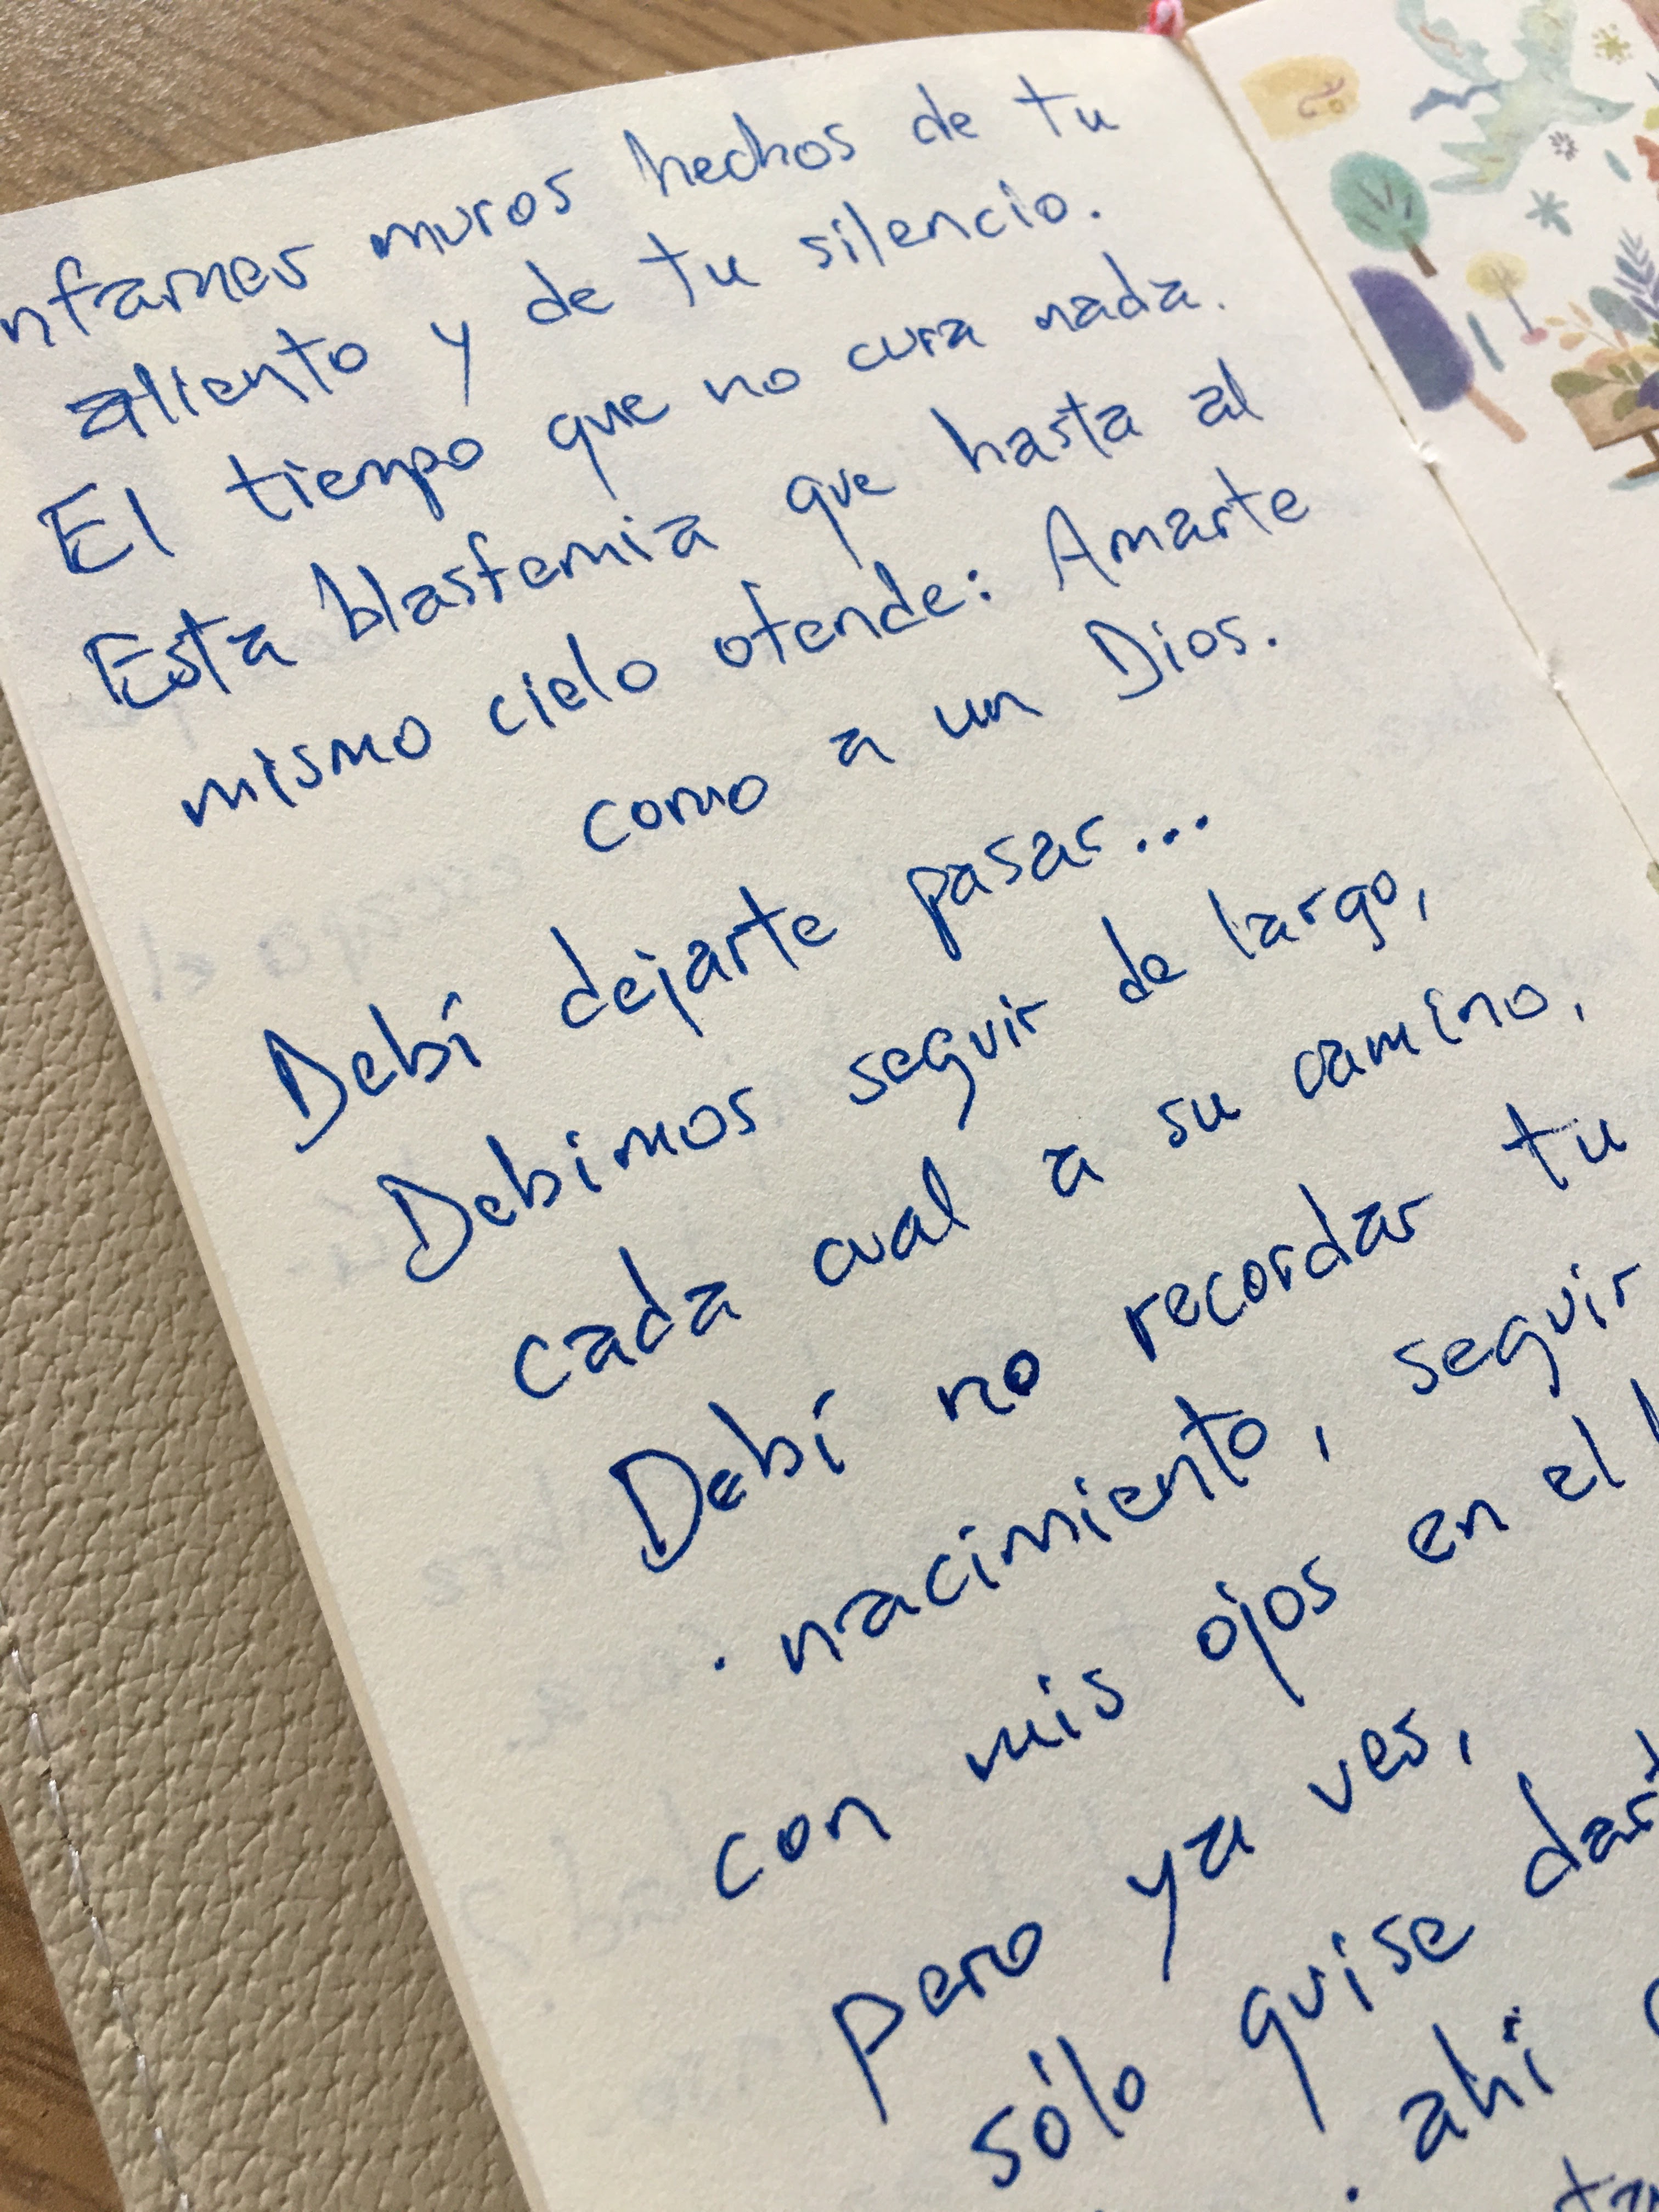 nfames muros hechos de tu
aliento y de tu silencio.
El tiempo que no cura nada.
Esta blasfemia que hasta al
mismo cielo ofende: Amarte
como a un Dios.
Debí dejarte pasar...
Debimos seguir de largo,
cada cual a su camino,
Debí no recordar tu
nacimiento, seguir
con mis ojos en el
pero ya ves,
sólo quise dar
ahí